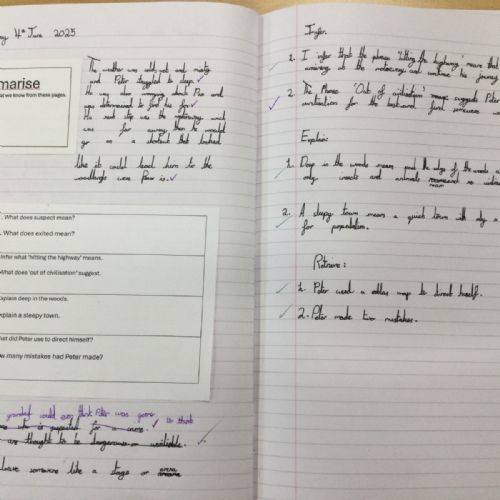 4th June 2025
marise
at we know from these pages.
The weather was cold, wet and misty
and Peter struggled to sleep.
He was also worrying about Pax and
was determined to find his fox
His next step was the motorway which
was far away then he would
go on a shortcut that looked
like it could lead him to the
woodlands were Pax is.
. What does suspect mean?
. What does exited mean?
Infer what 'hitting the highway' means.
What does 'out of civilisation' suggest.
Explain deep in the woods.
xplain a sleepy town.
hat did Peter use to direct himself?
ow many mistakes had Peter made?
grandad could even think Peter was gone to think
who is suspected for a crime.
are thought to be dangerous or unreliable.
leave somewhere like a stage or
Infer.
1. I infer that the phrase 'hitting the highway' means that
arriving at the motorway and continue his journey
2. The Phrase 'Out of civilisation' suggests Peter
civilisation for the
Explain:
1. Deep in the woods means past the edge of the woods
only woods and animals
2. A sleepy town means a quiet town with only a
for population.
Retrieve:
1. Peter used a atlas map to direct himself.
2. Peter made two mistakes.